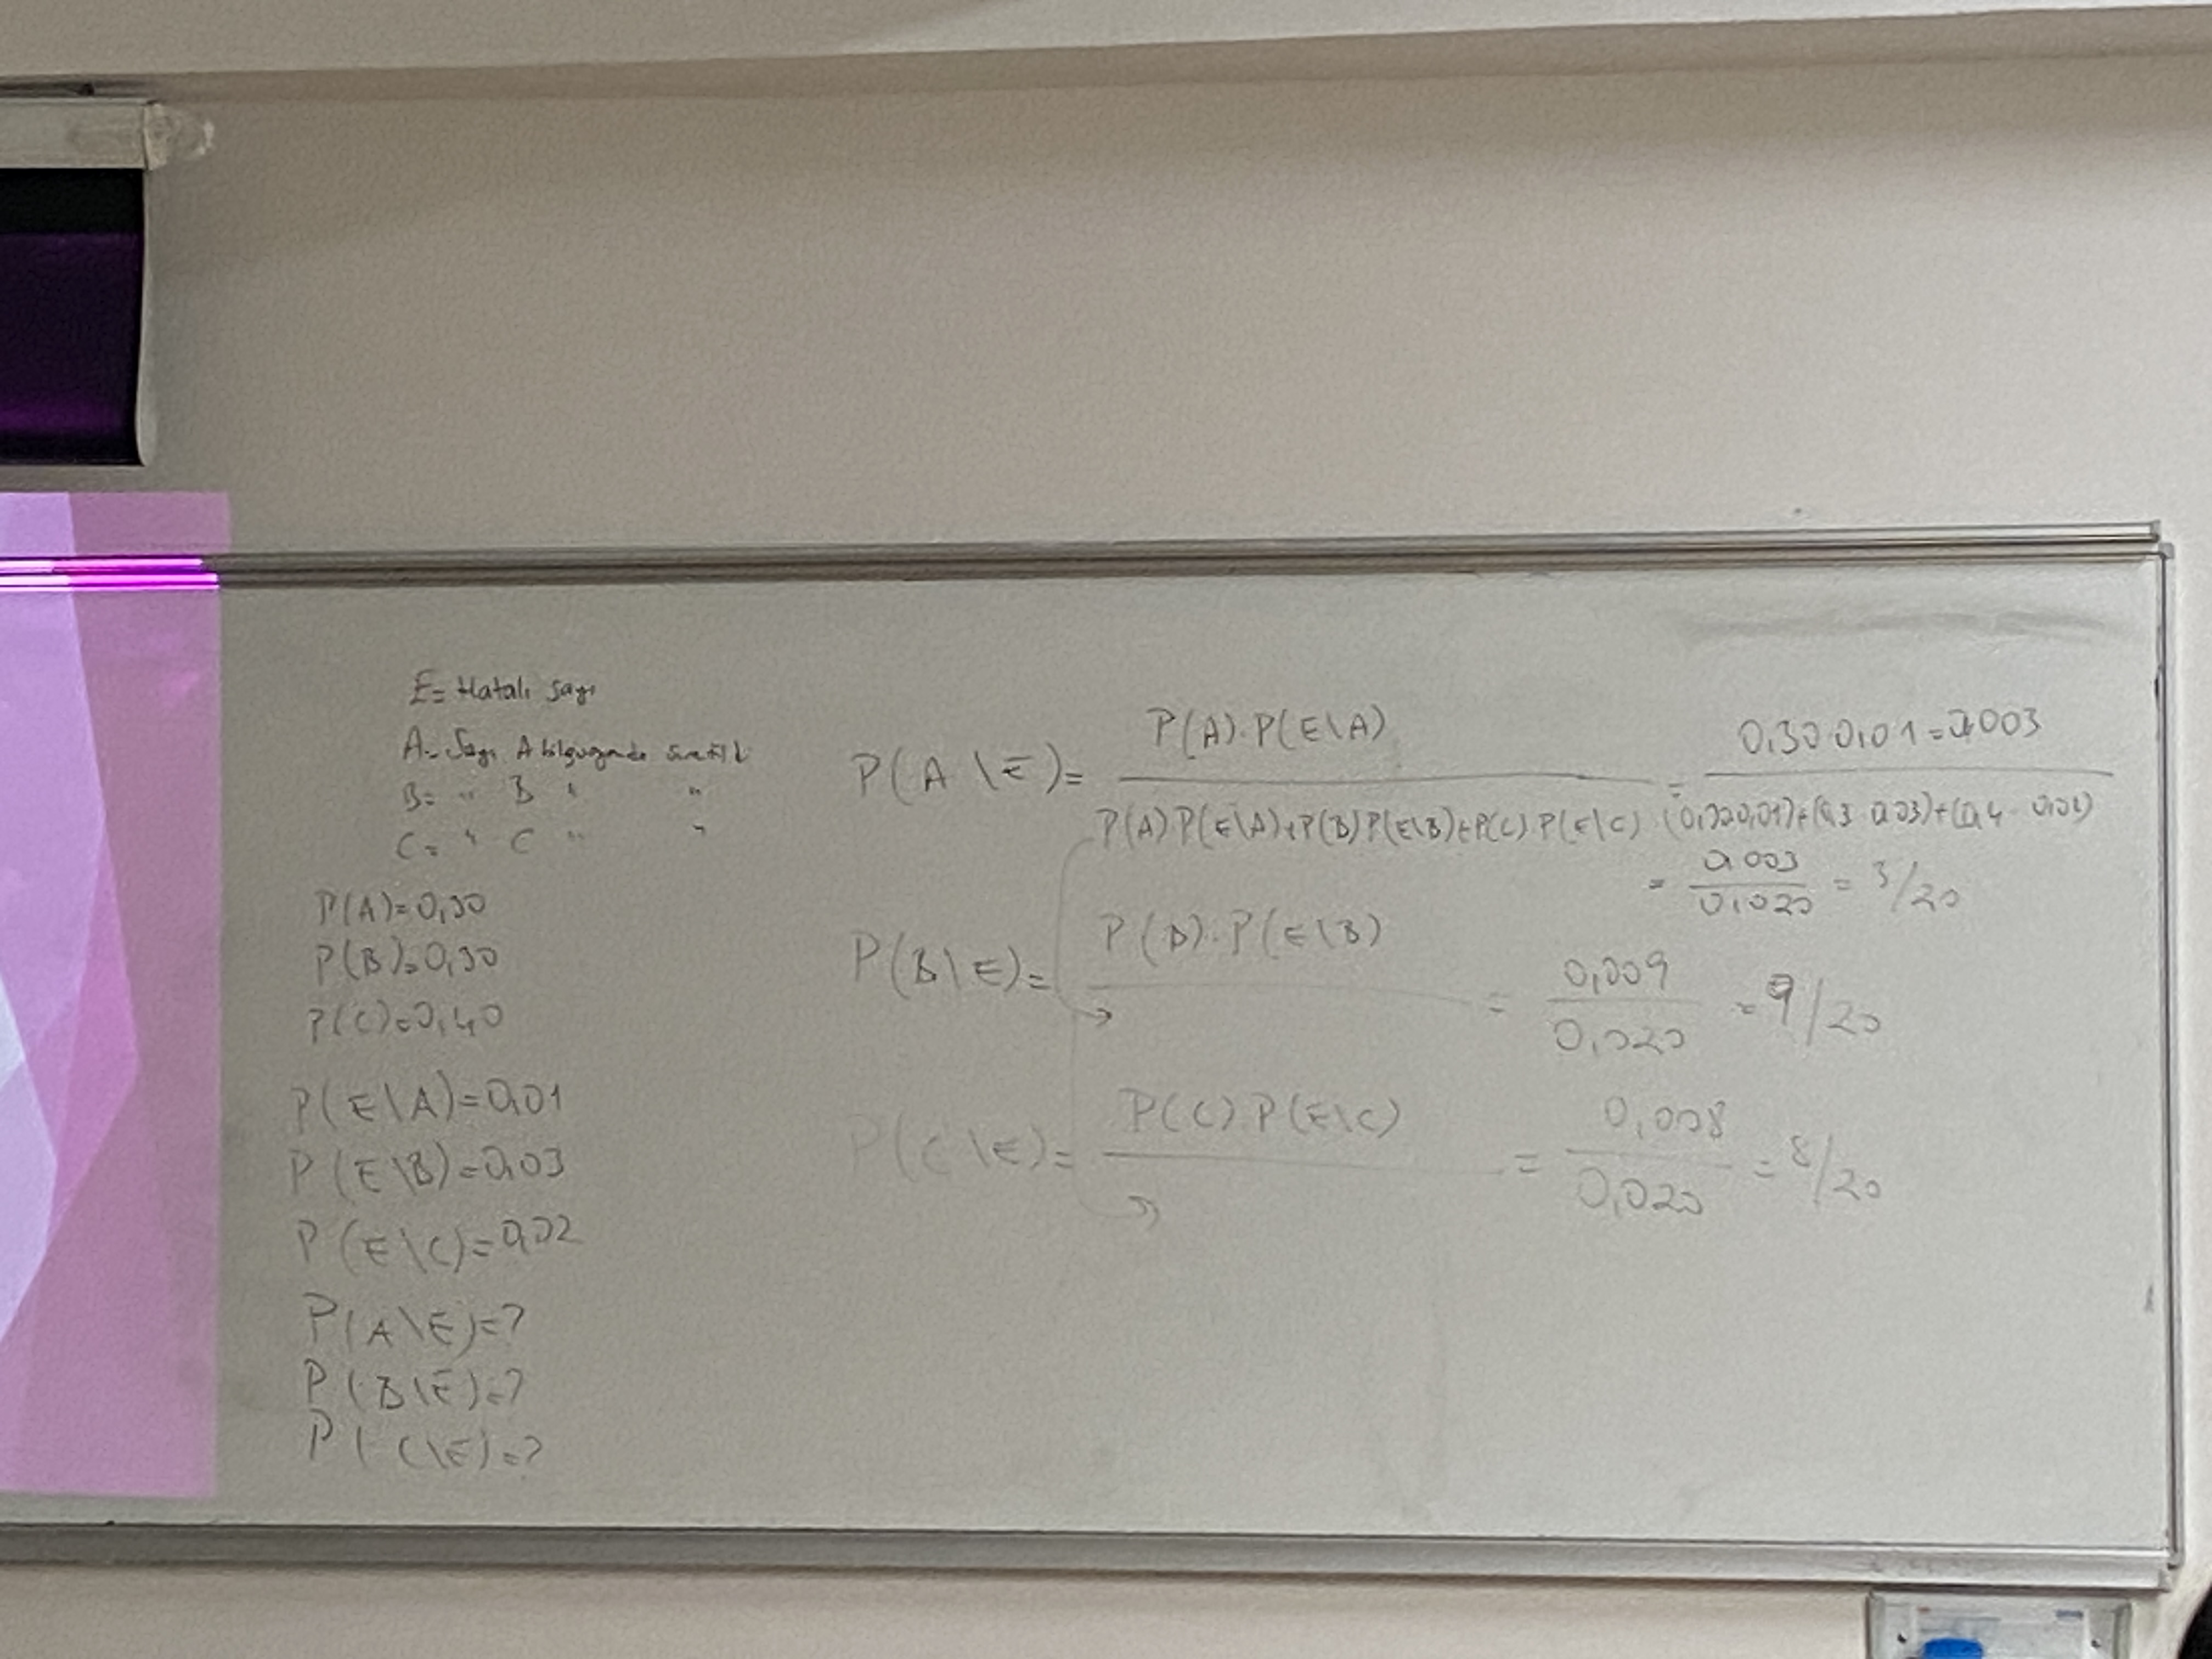 E= Hatalı sayı
A= Sayı A bilgisayarında üretildi
B= " B " "
C= " C " "
P(A)=0,30
P(B)=0,30
P(C)=0,40
P(E\A)=0,01
P(E\B)=0,03
P(E\C)=0,02
P(A\E)=?
P(B\E)=?
P(C\E)=?
P(A\E)= P(A).P(E\A) / P(A)P(E\A)+P(B)P(E\B)+P(C)P(E\C) = 0,30 0,01=0,003 / (0,30 0,01)+(0,3 0,03)+(0,4 0,02)
= 0,003 / 0,020 = 3/20
P(B\E)= P(B).P(E\B) = 0,009 / 0,020 = 9/20
P(C\E)= P(C).P(E\C) = 0,008 / 0,020 = 8/20